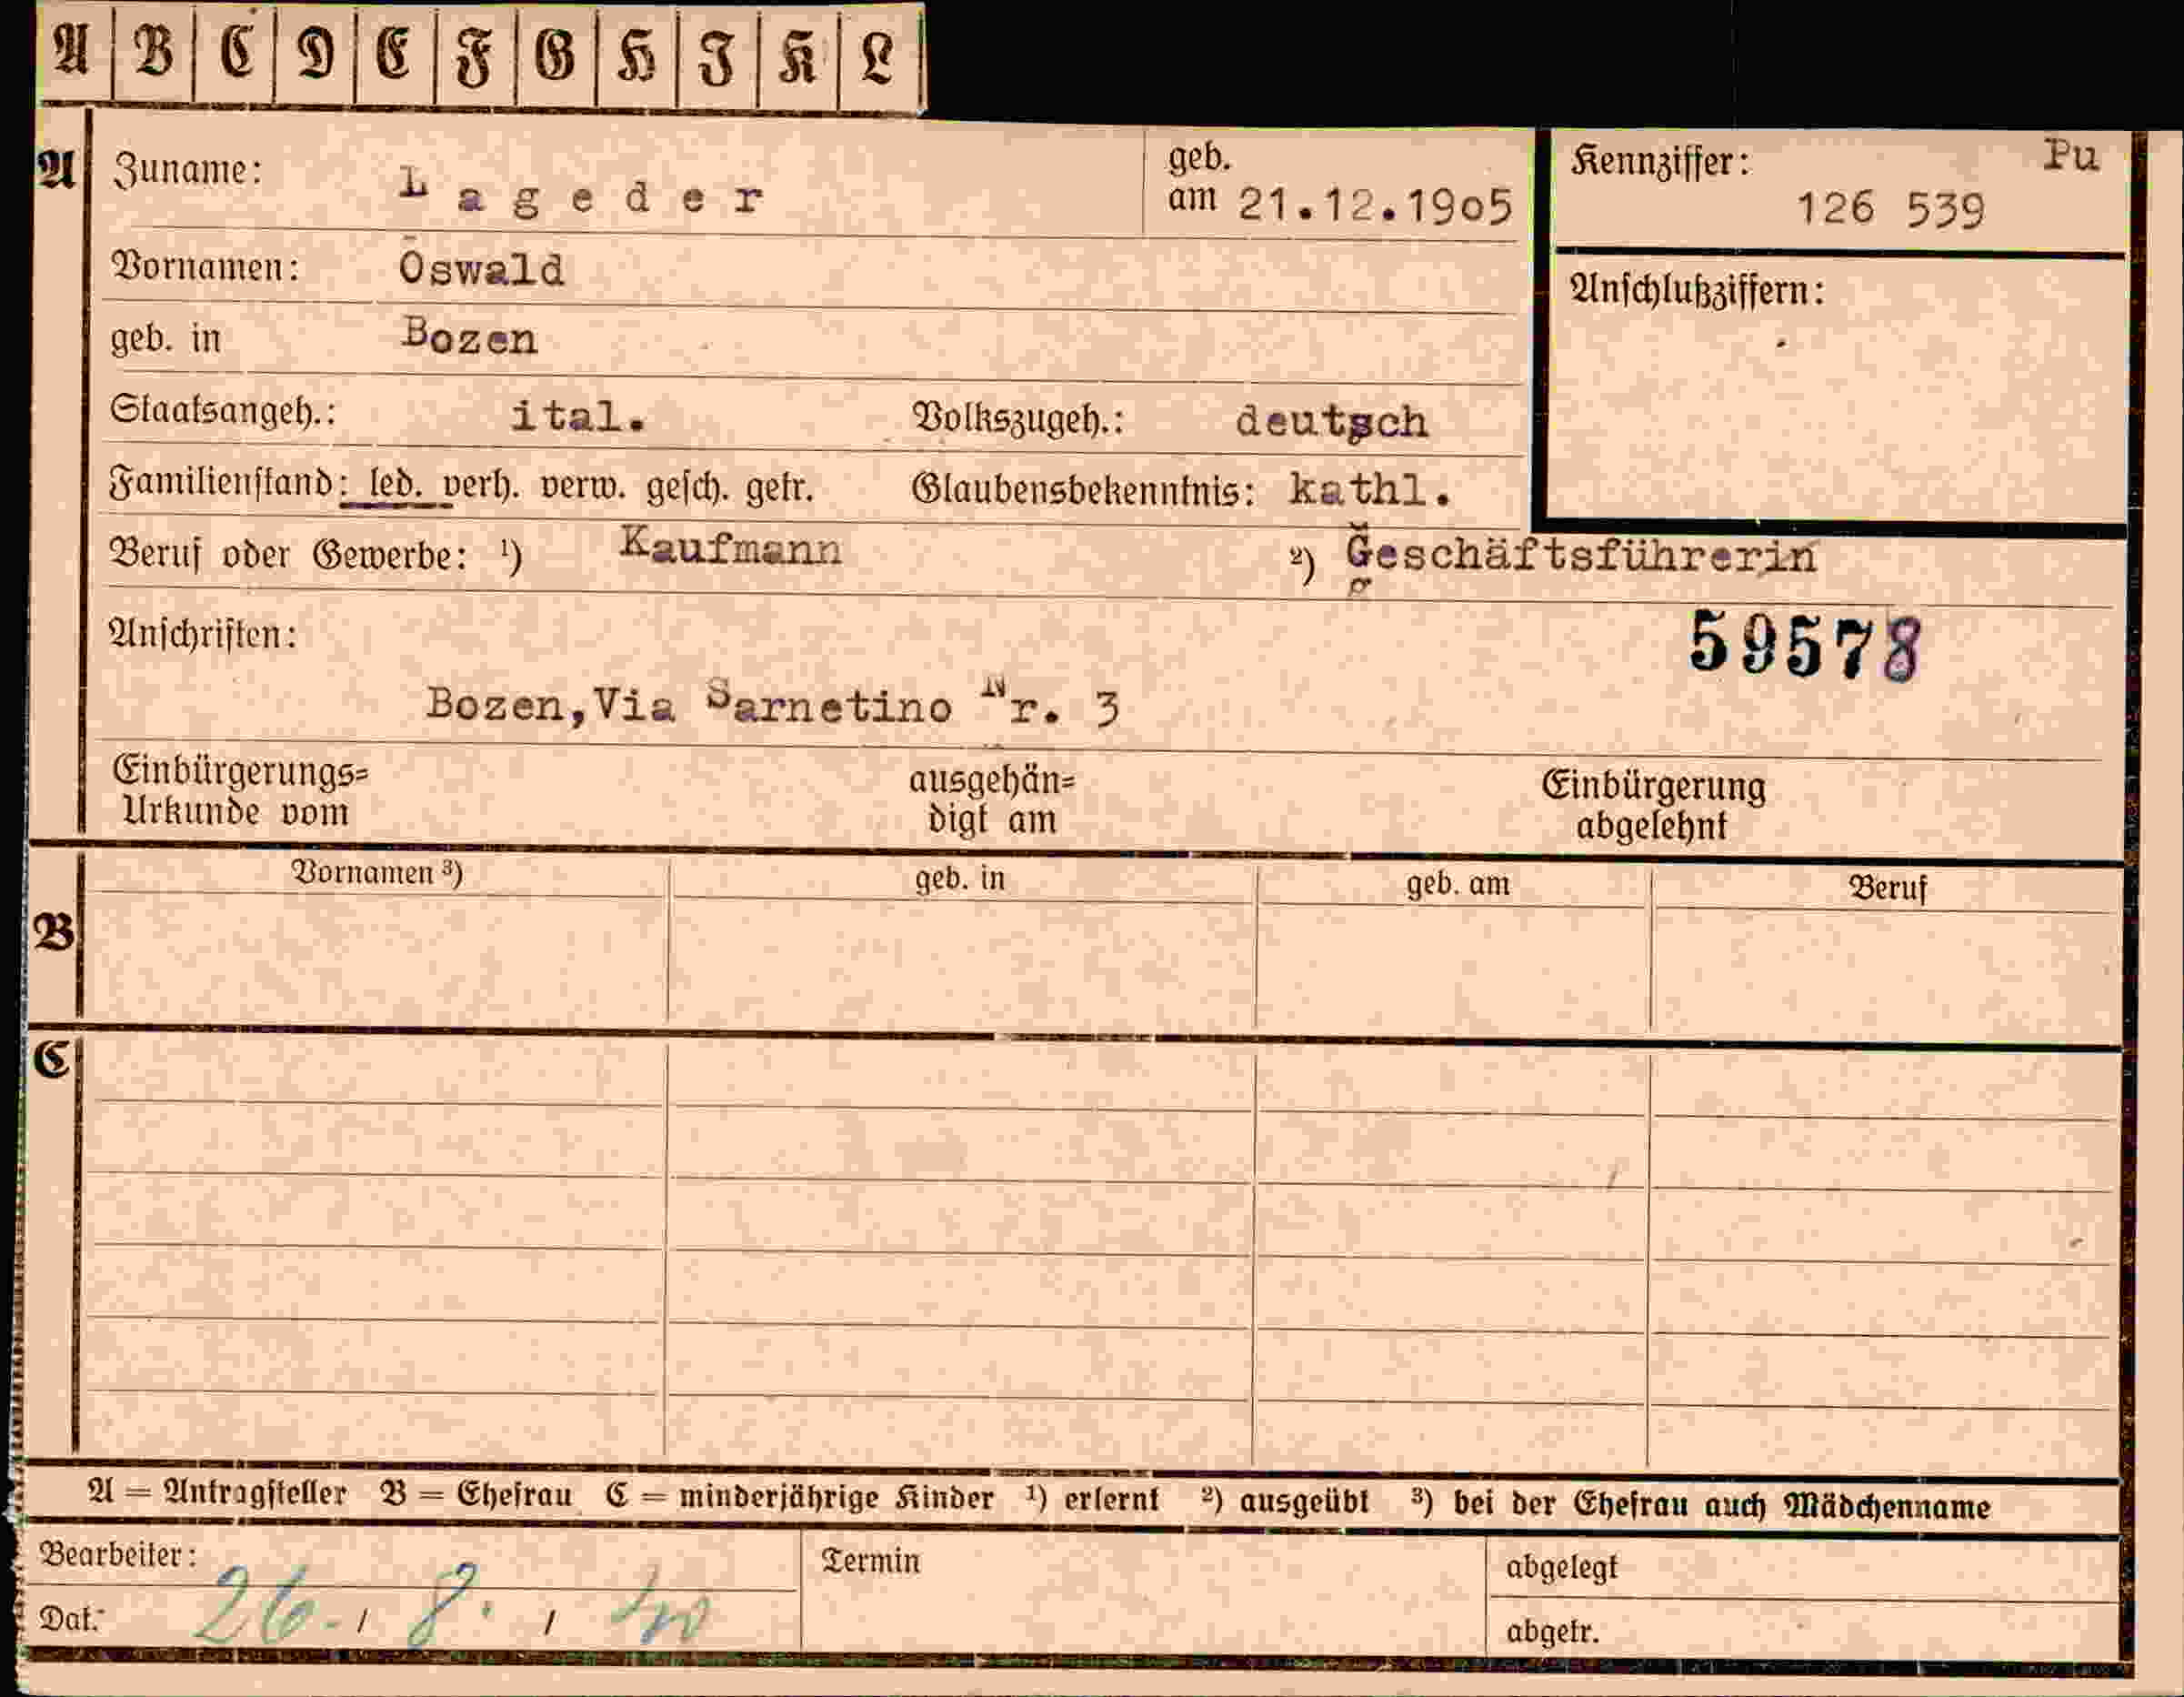 A B C D E F G H I K L
A Zuname: Lageder geb. am 21.12.1905 Kennziffer: Pu 126 539
Vornamen: Oswald Anschlußziffern:
geb. in Bozen
Staatsangeh.: ital. Volkszugeh.: deutsch
Familienstand: led. verh. verw. gesch. getr. Glaubensbekenntnis: kathl.
Beruf oder Gewerbe: ¹) Kaufmann ²) Geschäftsführerin
Anschriften: 59578
Bozen,Via Sarnetino Nr. 3
Einbürgerungs= ausgehän= Einbürgerung
Urkunde vom digt am abgelehnt
Vornamen ³) geb. in geb. am Beruf
B
C
A = Antragsteller B = Ehefrau C = minderjährige Kinder ¹) erlernt ²) ausgeübt ³) bei der Ehefrau auch Mädchenname
Bearbeiter: Termin abgelegt
Dat: 26. / 8. / 40 abgetr.